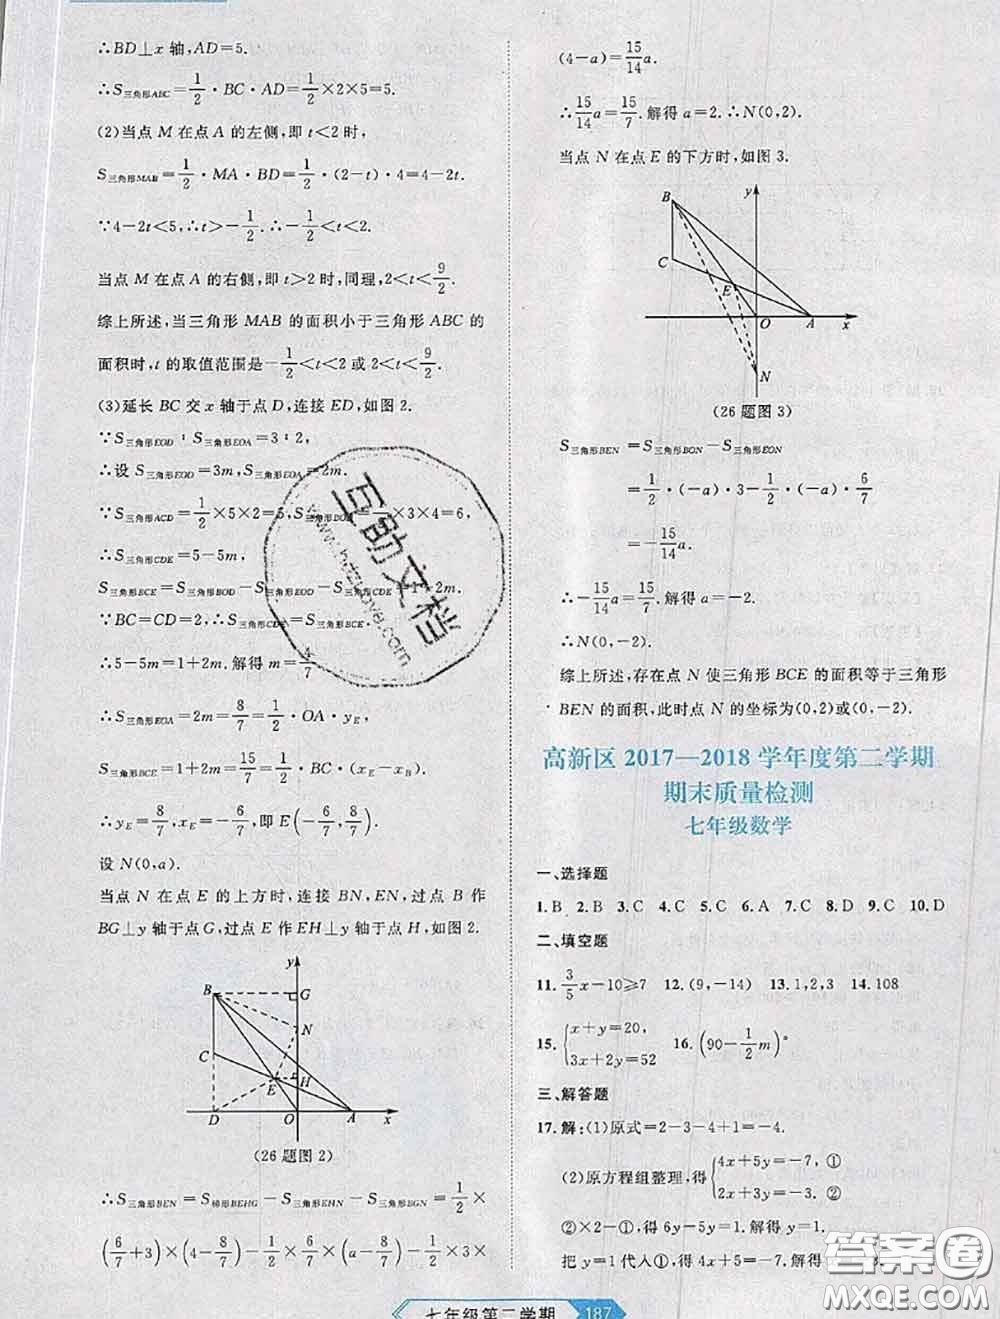 ∴BD⊥x 轴,AD=5.
∴S三角形ABC=1/2·BC·AD=1/2×2×5=5.
(2)当点 M 在点 A 的左侧,即 t<2 时,
S三角形MAB=1/2·MA·BD=1/2·(2-t)·4=4-2t.
∵4-2t<5,∴t>-1/2.∴-1/2<t<2.
当点 M 在点 A 的右侧,即 t>2 时,同理,2<t<9/2.
综上所述,当三角形 MAB 的面积小于三角形 ABC 的
面积时,t 的取值范围是-1/2<t<2 或 2<t<9/2.
(3)延长 BC 交 x 轴于点 D,连接 ED,如图 2.
∵S三角形EOD∶S三角形EOA=3∶2,
∴设 S三角形EOD=3m,S三角形EOA=2m.
∵S三角形ACD=1/2×5×2=5,S三角形BOD= ×3×4=6,
∴S三角形CDE=5-5m,
S三角形BCE=S三角形BOD-S三角形EOD-S三角形CDE=1+2m.
∵BC=CD=2,∴S三角形CDE=S三角形BCE.
∴5-5m=1+2m.解得 m=4/7
∴S三角形EOA=2m=8/7=1/2·OA·yE,
S三角形BCE=1+2m=15/7=1/2·BC·(xE-xB).
∴yE=8/7,xE=-6/7,即 E(-6/7,8/7).
设 N(0,a).
当点 N 在点 E 的上方时,连接 BN,EN,过点 B 作
BG⊥y 轴于点 G,过点 E 作 EH⊥y 轴于点 H,如图 2.
y
B
G
N
C
E
H
D
O
A
x
(26 题图 2)
∴S三角形BEN=S梯形BEHG-S三角形EHN-S三角形BGN=1/2×
(6/7+3)×(4-8/7)-1/2×6/7×(a-8/7)-1/2×3×
(4-a)=15/14a.
∴15/14a=15/7.解得 a=2.∴N(0,2)
当点 N 在点 E 的下方时,如图 3.
y
B
C
E
O
A
x
N
(26 题图 3)
S三角形BEN=S三角形BON-S三角形EON
=1/2·(-a)·3-1/2·(-a)·6/7
=-15/14a.
∴-15/14a=15/7.解得 a=-2.
∴N(0,-2).
综上所述,存在点 N 使三角形 BCE 的面积等于三角形
BEN 的面积,此时点 N 的坐标为(0,2)或(0,-2).
高新区 2017—2018 学年度第二学期
期末质量检测
七年级数学
一、选择题
1.B 2.B 3.C 4.C 5.C 6.A 7.C 8.D 9.C 10.D
二、填空题
11.3/5x-10≥7 12.(9,-14) 13.1,2,3 14.108
15.{x+y=20, 3x+2y=52 16.(90-1/2m)°
三、解答题
17.解:(1)原式=2-3-4+1=-4.
(2)原方程组整理,得{4x+5y=-7,① 2x+3y=-3.②
②×2-①,得 6y-5y=1.解得 y=1.
把 y=1 代人①,得 4x+5=-7.解得
互助文档
www.hdzuoye.com
答案圈
MXQE.COM
七年级第二学期
187